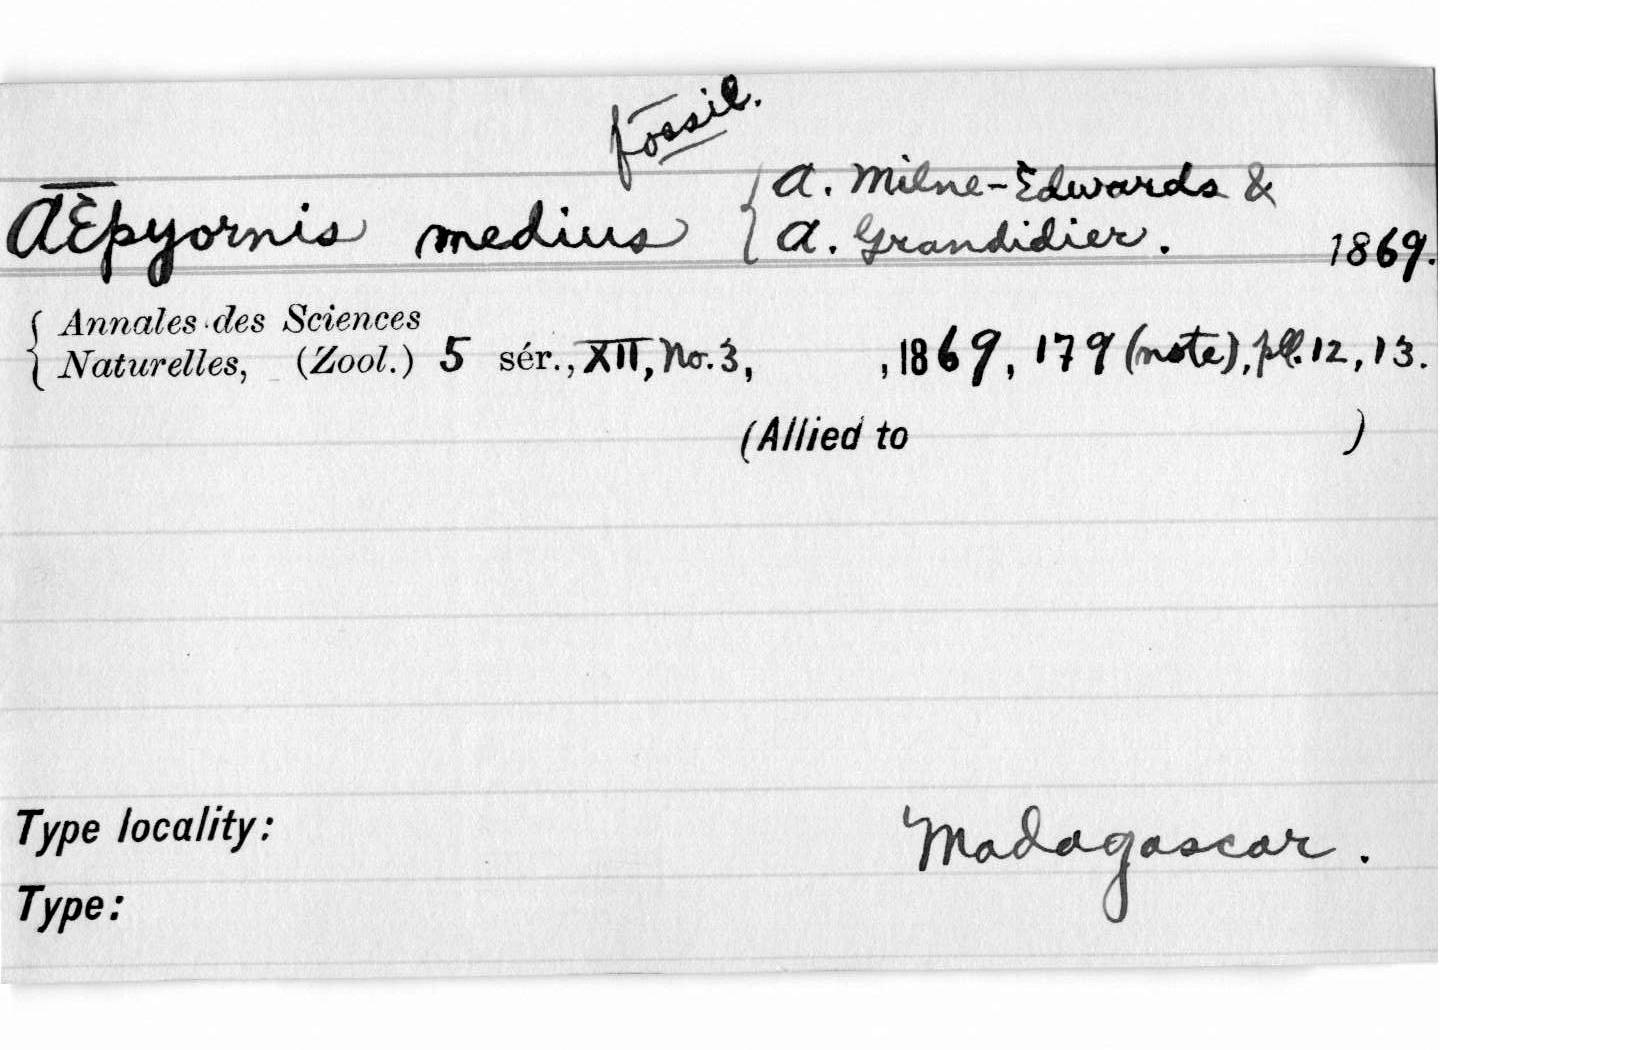 fossil.
Æpyornis medius { A. Milne-Edwards &
A. Grandidier. 1869.
{ Annales des Sciences
Naturelles, (Zool.) 5 sér., XII, No. 3, , 1869, 179 (note), pll. 12, 13.
(Allied to )
Type locality: Madagascar.
Type: